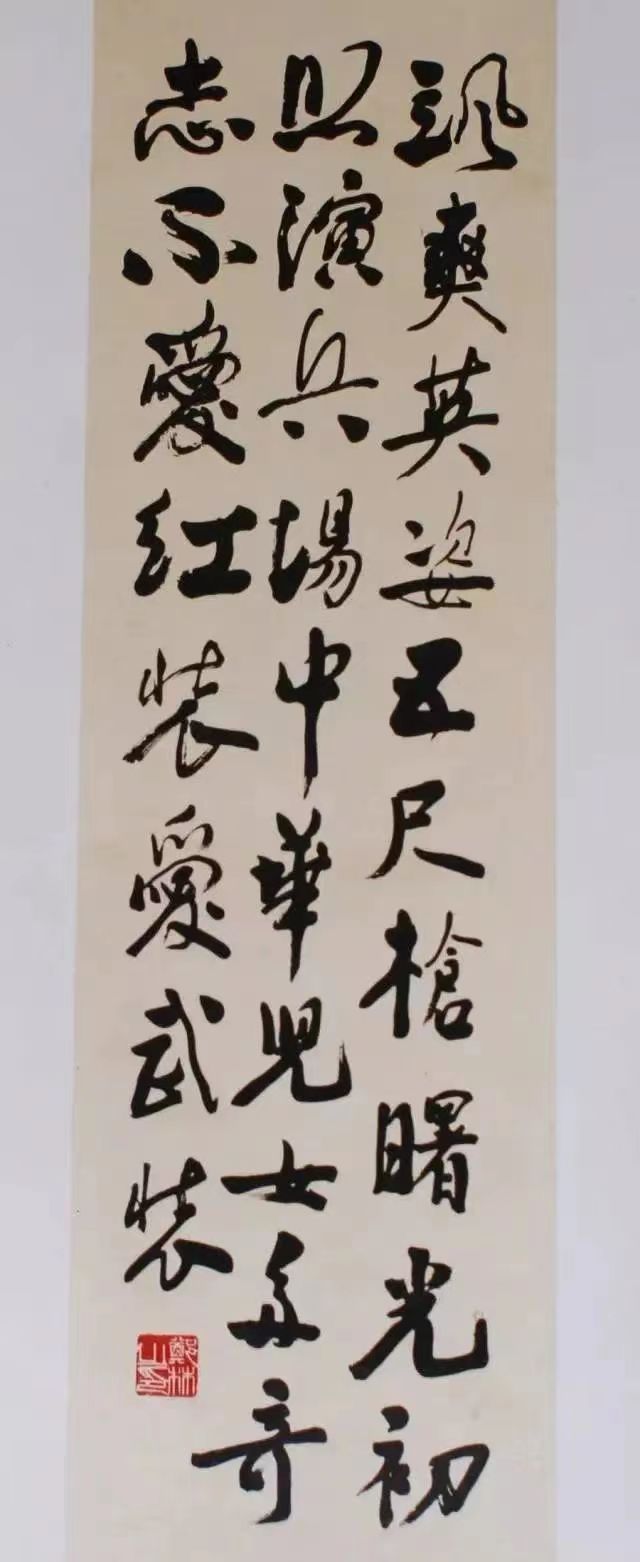 颯爽英姿五尺槍曙光初
照演兵場中華兒女多奇
志不愛红装愛武装
鄭林
山印